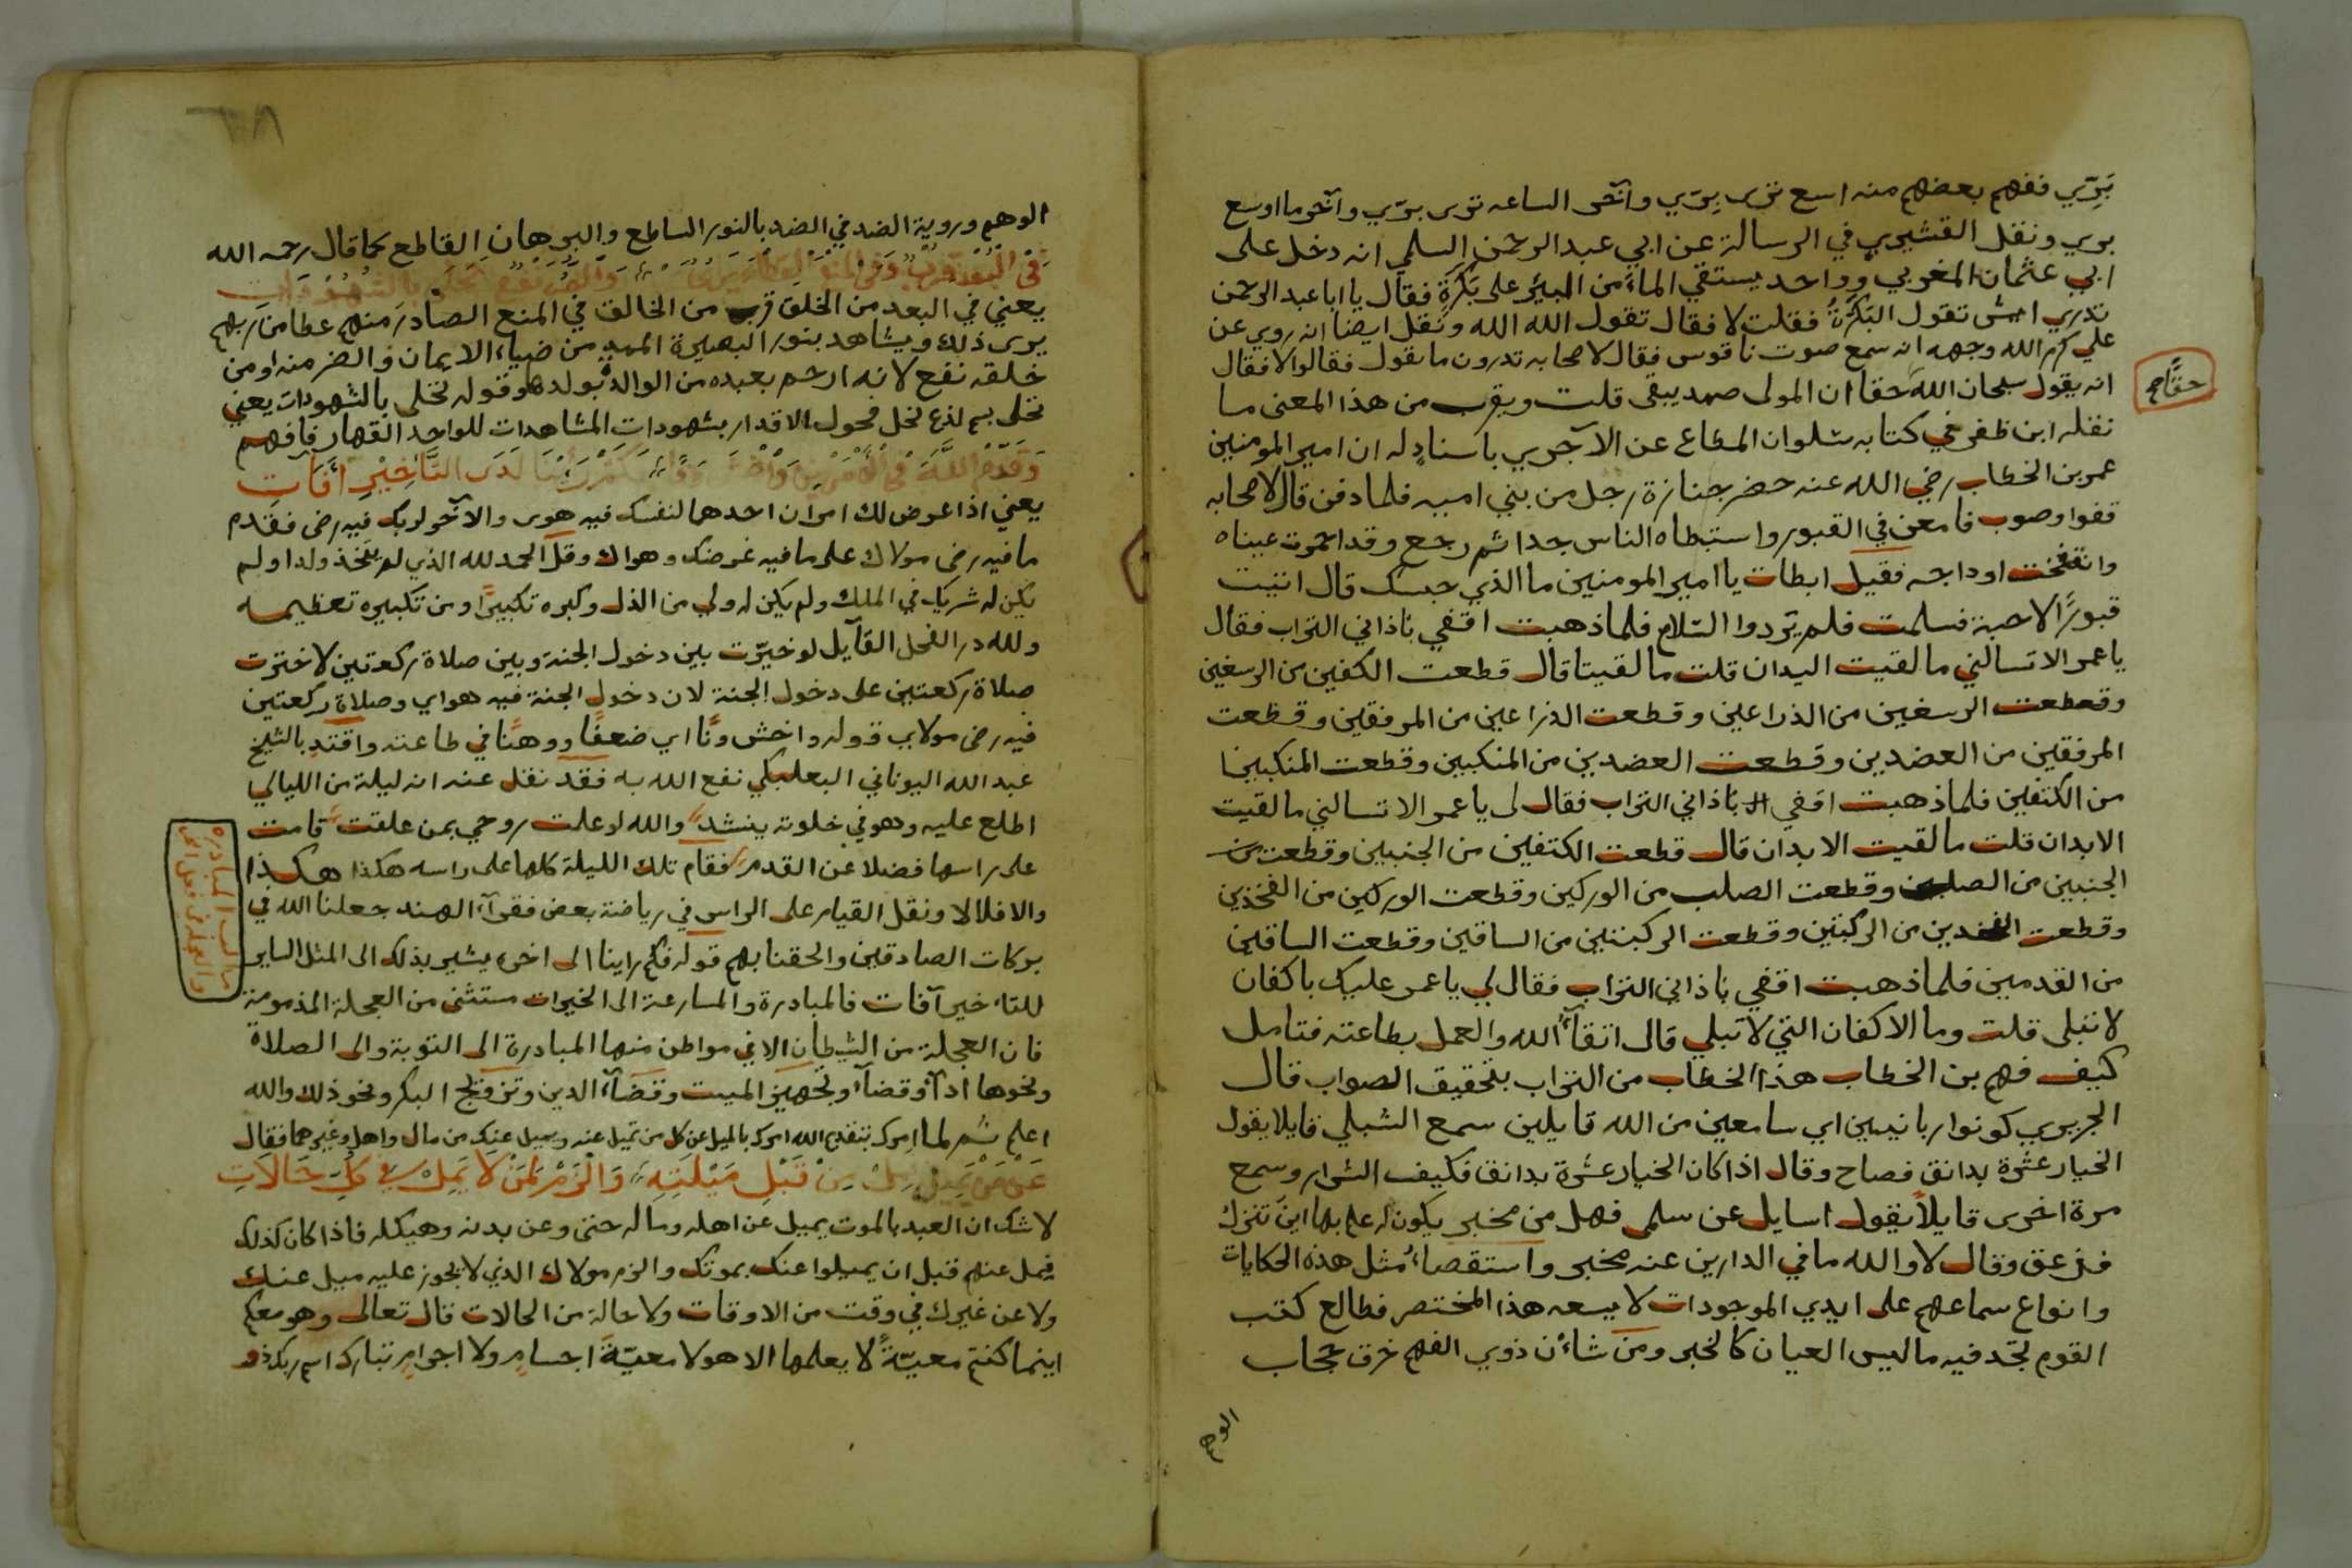 بَرِّي ففهم بعضهم منه اسع ترى بِرّي وآخر الساعه ترى برّي وآخر ما اوسع
بري ونقل القشيري في الرسالة عن ابي عبد الرحمن السلمي انه دخل على
ابي عثمان المغربي وواحد يستقي الماء من البئر على بَكْرَةٍ فقال يا ابا عبد الرحمن
تدري ايش تقول البَكَرَةُ فقلت لا فقال تقول الله الله ونقل ايضا انه روي عن
علي كرم الله وجهه انه سمع صوت ناقوس فقال لاصحابه تدرون ما يقول فقالوا لا فقال
انه يقول سبحان الله حقا ان المولى صمد يبقى قلت ويقرب من هذا المعنى ما
حقًا صح
نقله ابن ظفر في كتابه سلوان المطاع عن الآجري باسنادٍ له ان امير المومنين
عمر بن الخطاب رضي الله عنه حضر جنازة رجل من بني اميه فلما دفن قال لاصحابه
قفوا وصوب فامعن في القبور واستبطاه الناس جدا ثم رجع وقد احمرت عيناه
وانتفخت اوداجه فقيل ابطات يا امير المومنين ما الذي حبسك قال اتيت
قبورًا لاحبة فسلمت فلم يردوا السلام فلما ذهبت اقفي ناداني التراب فقال
يا عمر الا تسالني ما لقيت اليدان قلت ما لقيتا قال قطعت الكفين من الرسغين
وقطعت الرسغين من الذراعين وقطعت الذراعين من المرفقين وقطعت
المرفقين من العضدين وقطعت العضدين من المنكبين وقطعت المنكبين
من الكتفين فلما ذهبت اقفي ناداني التراب فقال لى يا عمر الا تسالني ما لقيت
الابدان قلت ما لقيت الابدان قال قطعت الكتفين من الجنبين وقطعت
الجنبين من الصلب وقطعت الصلب من الوركين وقطعت الوركين من الفخذين
وقطعت الفخذين من الركبتين وقطعت الركبتين من الساقين وقطعت الساقين
من القدمين فلما ذهبت اقفي ناداني التراب فقال لي يا عمر عليك باكفان
لا تبلى قلت وما الاكفان التي لا تبلي قال اتقآء الله والعمل بطاعته فتامل
كيف فهم بن الخطاب هذا الخطاب من التراب بتحقيق الصواب قال
الجريري كونوا ربانيين اي سامعين من الله قايلين سمع الشبلي قايلا يقول
الخيار عشرة بدانق فصاح وقال اذا كان الخيار عشرة بدانق فكيف الشرار وسمع
مرة اخرى قايلاً يقول اسايل عن سلمى فهل من مخبر يكون له علم بها اين تنزل
فزعق وقال لا والله ما في الدارين عنه مخبر واستقصاء مثل هذه الحكايات
وانواع سماعهم على ايدي الموجودات لا يسعه هذا المختصر فطالع كتب
القوم تجد فيه ما ليس العيان كالخبر ومن شاءن ذوي الفهم خرق حجاب
الوهم
الوهم وروية الضد في الضد بالنور الساطع والبرهان القاطع كما قال رحمه الله
فى الْبُعْد قرب وفى المنع
يعني في البعد من الخلق قرب من الخالق في المنع الصادر منهم عطا من ربهم
يرى ذلك ويشاهد بنور البصيرة المهدي من ضياء الايمان والضر منه او من
خلقه نفع لانه ارحم بعبده من الوالدة بولدها وقوله تحلى بالشهودات يعني
تحلى بسم لذع نحل محول الاقدار بشهودات المشاهدات للواحد القهار فافهم
لدى التَّاخِيْرِ آفات
يعني اذا عرض لك امران احدهما لنفسك فيه هوى والآخر لربك فيه رضى فقدم
ما فيه رضى مولاك على ما فيه غرضك وهواك وقل الحمد لله الذي لم يتخذ ولدا ولم
يكن له شريك في الملك ولم يكن له ولي من الذل وكبره تكبيرًا ومن تكبيره تعظيمه
ولله در الفحل القآيل لو خيّرت بين دخول الجنة وبين صلاة ركعتين لاخترت
صلاة ركعتين على دخول الجنة لان دخول الجنة فيه هواي وصلاة ركعتين
فيه رضى مولاي قوله واخش ونًا اي ضعفًا ووهنًا في طاعته واقتدِ بالشيخ
عبد الله اليوناني البعلبكي نفع الله به فقد نقل عنه انه ليلة من الليالي
اطلع عليه وهو في خلوته ينشد والله لو علمت روحي بمن علقت قامت
على راسها فضلا عن القدم فقام تلك الليلة كلها على راسه هكذا هكذا
والا فلا لا ونقل القيام على الراس في رياضة بعض فقرآء الهند جعلنا الله في
بركات الصادقين والحقنا بهم قوله فكم راينا الى اخره يشير بذلك الى المثل الساير
للتاخير آفات فالمبادرة والمسارعة الى الخيرات مستثنى من العجلة المذمومة
فان العجلة من الشيطان الا في مواطن منها المبادرة الى التوبة والى الصلاة
ونحوها ادآءً وقضآءً وتجهيز الميت وقضآء الدين وتزويج البكر ونحو ذلك والله
اعلم ثم لما امرك بتقديم الله امرك بالميل عن كل من تميل عنه ويميل عنك من مال واهل وغيرهما فقال
عَنْ مَنْ يَمِيْلُ مِنْ قَبْلِ مَيْلَتِهِ وَالْزَمْ لِمَنْ لَا يَمِلْ في كُلِّ حَالَاتِ
لا شك ان العبد بالموت يميل عن اهله وماله حتى وعن بدنه وهيكله فاذا كان كذلك
فمل عنهم قبل ان يميلوا عنك بموتك والزم مولاك الذي لا يجوز عليه ميل عنك
ولا عن غيرك في وقت من الاوقات ولا حالة من الحالات قال تعالى وهو معكم
اينما كنتم معيّةً لا يعلمها الا هو لا معيّةً اجسامٍ ولا اجرامٍ تبارك اسم ربك ذو